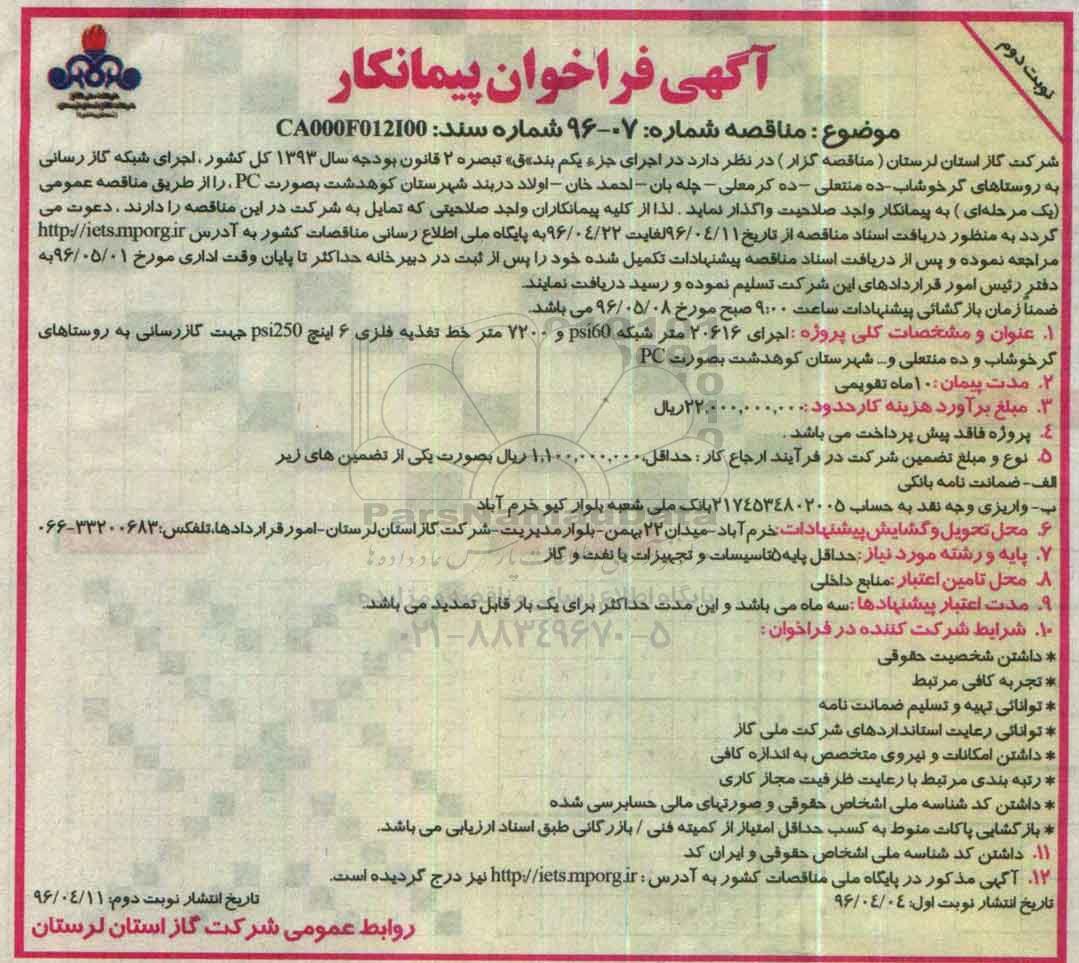 نوبت دوم
آگهی فراخوان پیمانکار
موضوع: مناقصه شماره: ۰۷-۹۶ شماره سند: CA000F012I00
شرکت گاز استان لرستان ( مناقصه گزار ) در نظر دارد در اجرای جزء یکم بند«ق» تبصره ۲ قانون بودجه سال ۱۳۹۳ کل کشور ، اجرای شبکه گاز رسانی
به روستاهای گرخوشاب-ده منتعلی -ده کرمعلی - چله بان -احمد خان -اولاد دربند شهرستان کوهدشت بصورت PC ، را از طریق مناقصه عمومی
(یک مرحله‌ای ) به پیمانکار واجد صلاحیت واگذار نماید . لذا از کلیه پیمانکاران واجد صلاحیتی که تمایل به شرکت در این مناقصه را دارند ، دعوت می
گردد به منظور دریافت اسناد مناقصه از تاریخ ۹۶/۰۴/۱۱لغایت ۹۶/۰۴/۲۲به پایگاه ملی اطلاع رسانی مناقصات کشور به آدرس http://iets.mporg.ir
مراجعه نموده و پس از دریافت اسناد مناقصه پیشنهادات تکمیل شده خود را پس از ثبت در دبیرخانه حداکثر تا پایان وقت اداری مورخ ۹۶/۰۵/۰۱به
دفتر رئیس امور قراردادهای این شرکت تسلیم نموده و رسید دریافت نمایند.
ضمناً زمان بازگشائی پیشنهادات ساعت ۹:۰۰ صبح مورخ ۹۶/۰۵/۰۸ می باشد.
۱. عنوان و مشخصات کلی پروژه :اجرای ۲۰۶۱۶ متر شبکه psi60 و ۷۲۰۰ متر خط تغذیه فلزی ۶ اینچ psi250 جهت گازرسانی به روستاهای
گرخوشاب و ده منتعلی و... شهرستان کوهدشت بصورت PC
۲. مدت پیمان:۱۰ماه تقویمی
۳. مبلغ برآورد هزینه کارحدود :۲۲،۰۰۰،۰۰۰،۰۰۰ریال
۴. پروژه فاقد پیش پرداخت می باشد .
۵. نوع و مبلغ تضمین شرکت در فرآیند ارجاع کار : حداقل۱،۱۰۰،۰۰۰،۰۰۰ ریال بصورت یکی از تضمین های زیر
الف- ضمانت نامه بانکی
ب- واریزی وجه نقد به حساب ۲۱۷۴۵۳۴۸۰۲۰۰۵بانک ملی شعبه بلوار کیو خرم آباد
۶. محل تحویل و گشایش پیشنهادات:خرم آباد-میدان۲۲بهمن-بلوار مدیریت-شرکت گاز استان لرستان-امور قراردادها،تلفکس: ۰۶۶-۳۳۲۰۰۶۸۳
۷. پایه و رشته مورد نیاز:حداقل پایه۵تاسیسات و تجهیزات یا نفت و گاز
۸. محل تامین اعتبار :منابع داخلی
۹. مدت اعتبار پیشنهادها :سه ماه می باشد و این مدت حداکثر برای یک بار قابل تمدید می باشد.
۱۰. شرایط شرکت کننده در فراخوان :
* داشتن شخصیت حقوقی
* تجربه کافی مرتبط
* توانائی تهیه و تسلیم ضمانت نامه
* توانائی رعایت استانداردهای شرکت ملی گاز
* داشتن امکانات و نیروی متخصص به اندازه کافی
* رتبه بندی مرتبط با رعایت ظرفیت مجاز کاری
* داشتن کد شناسه ملی اشخاص حقوقی و صورتهای مالی حسابرسی شده
* بازگشایی پاکات منوط به کسب حداقل امتیاز از کمیته فنی / بازرگانی طبق اسناد ارزیابی می باشد.
۱۱. داشتن کد شناسه ملی اشخاص حقوقی و ایران کد
۱۲. آگهی مذکور در پایگاه ملی مناقصات کشور به آدرس : http://iets.mporg.ir نیز درج گردیده است.
تاریخ انتشار نوبت اول: ۹۶/۰۴/۰۴
تاریخ انتشار نوبت دوم: ۹۶/۰۴/۱۱
روابط عمومی شرکت گاز استان لرستان
پایگاه اطلاع رسانی مناقصه و مزایده
۰۲۱-۸۸۳۴۹۶۷۰-۵